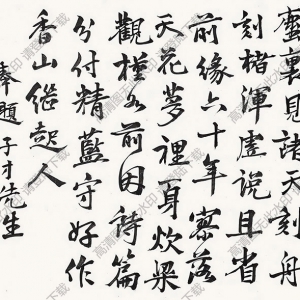 龕裏見諸天刻舟
刻楮渾虛說且省
前緣六十年寥落
天花夢裡身炊粱
觀槿如前因詩篇
分付精藍守好作
香山繼起人
奉題子才先生